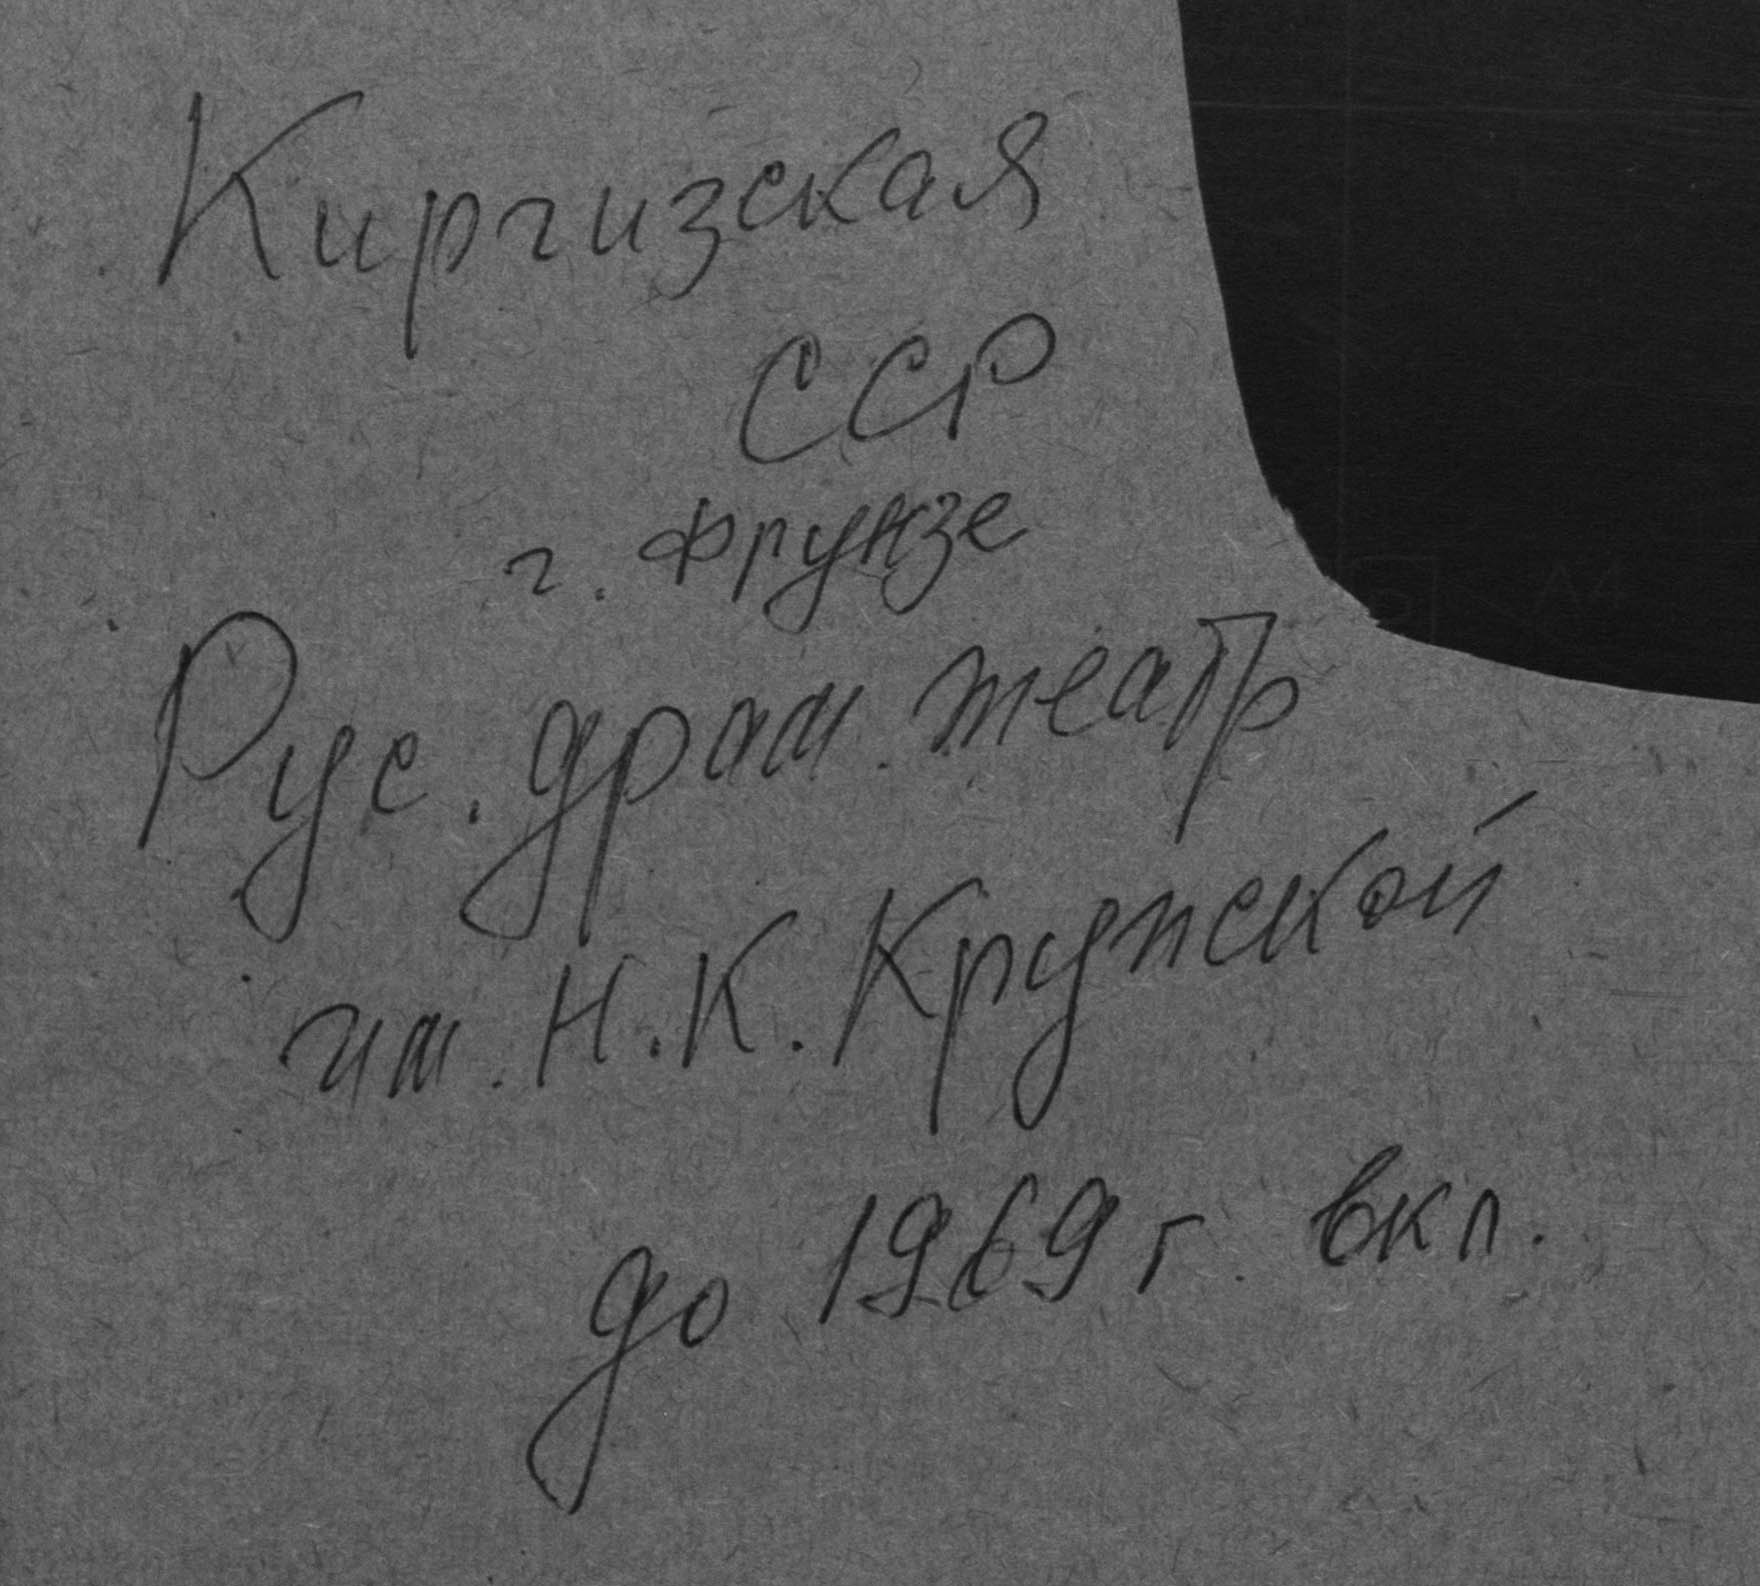 Киргизская
ССР
г. Фрунзе
Рус. драм. театр
им. Н. К. Крупской
до 1969 г. вкл.